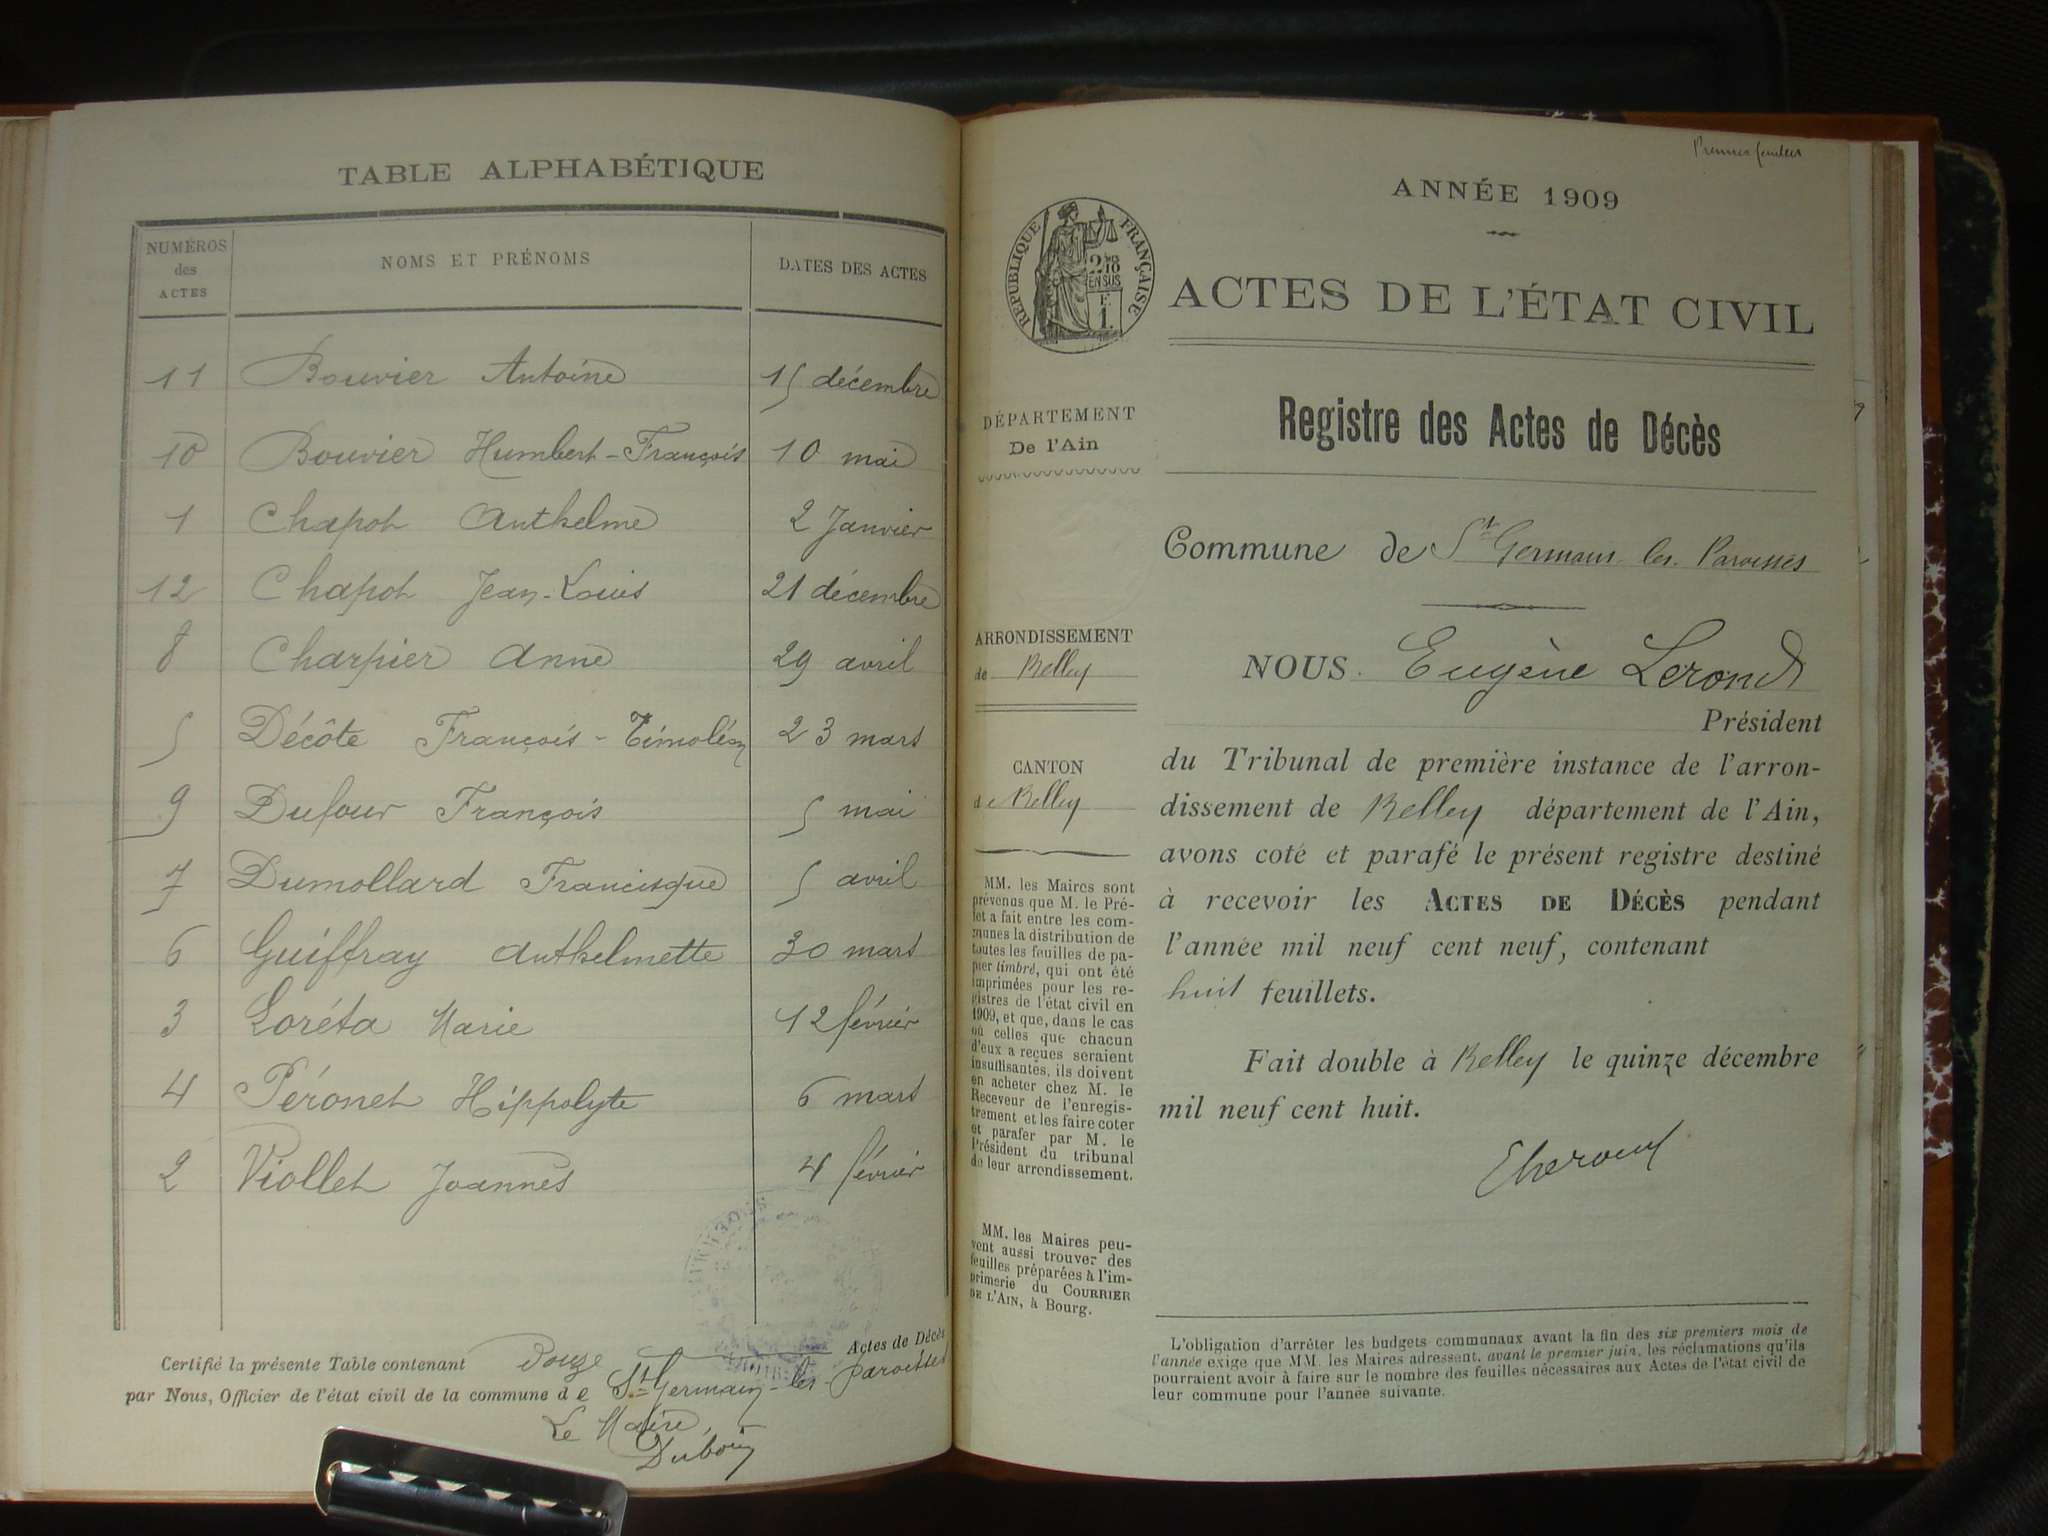 TABLE ALPHABÉTIQUE
NUMÉROS des ACTES
NOMS ET PRÉNOMS
DATES DES ACTES
11 Bouvier Antoine 15 décembre
10 Bouvier Humbert-François 10 mai
1 Chapot Anthelme 2 Janvier
12 Chapot Jean-Louis 21 décembre
8 Charpier Anne 29 avril
5 Décôte François-Timoléon 23 mars
9 Dufour François 5 mai
7 Dumollard Francisque 5 avril
6 Guiffray Anthelmette 30 mars
3 Loréta Marie 12 février
4 Péronet Hippolyte 6 mars
2 Viollet Joannès 4 février
Certifié la présente Table contenant Douze Actes de Décès
par Nous, Officier de l'état civil de la commune de St-Germain-les-Paroisses
Le Maire,
Premier feuillet
ANNÉE 1909
RÉPUBLIQUE FRANÇAISE
2/10
EN SUS
F.
1.
ACTES DE L'ÉTAT CIVIL
DÉPARTEMENT
De l'Ain
ARRONDISSEMENT
de Belley
CANTON
de Belley
MM. les Maires sont
prévenus que M. le Pré-
fet a fait entre les com-
munes la distribution de
toutes les feuilles de pa-
pier timbré, qui ont été
imprimées pour les re-
gistres de l'état civil en
1909, et que, dans le cas
où celles que chacun
d'eux a reçues seraient
insuffisantes, ils doivent
en acheter chez M. le
Receveur de l'enregis-
trement et les faire coter
et parafer par M. le
Président du tribunal
de leur arrondissement.
MM. les Maires peu-
vent aussi trouver des
feuilles préparées à l'im-
primerie du COURRIER
DE L'AIN, à Bourg.
Registre des Actes de Décès
Commune de St Germain les Paroisses
NOUS Eugène Lerond
Président
du Tribunal de première instance de l'arron-
dissement de Belley département de l'Ain,
avons coté et parafé le présent registre destiné
à recevoir les ACTES DE DÉCÈS pendant
l'année mil neuf cent neuf, contenant
huit feuillets.
Fait double à Belley le quinze décembre
mil neuf cent huit.
L'obligation d'arrêter les budgets communaux avant la fin des six premiers mois de
l'année exige que MM. les Maires adressent, avant le premier juin, les réclamations qu'ils
pourraient avoir à faire sur le nombre des feuilles nécessaires aux Actes de l'état civil de
leur commune pour l'année suivante.